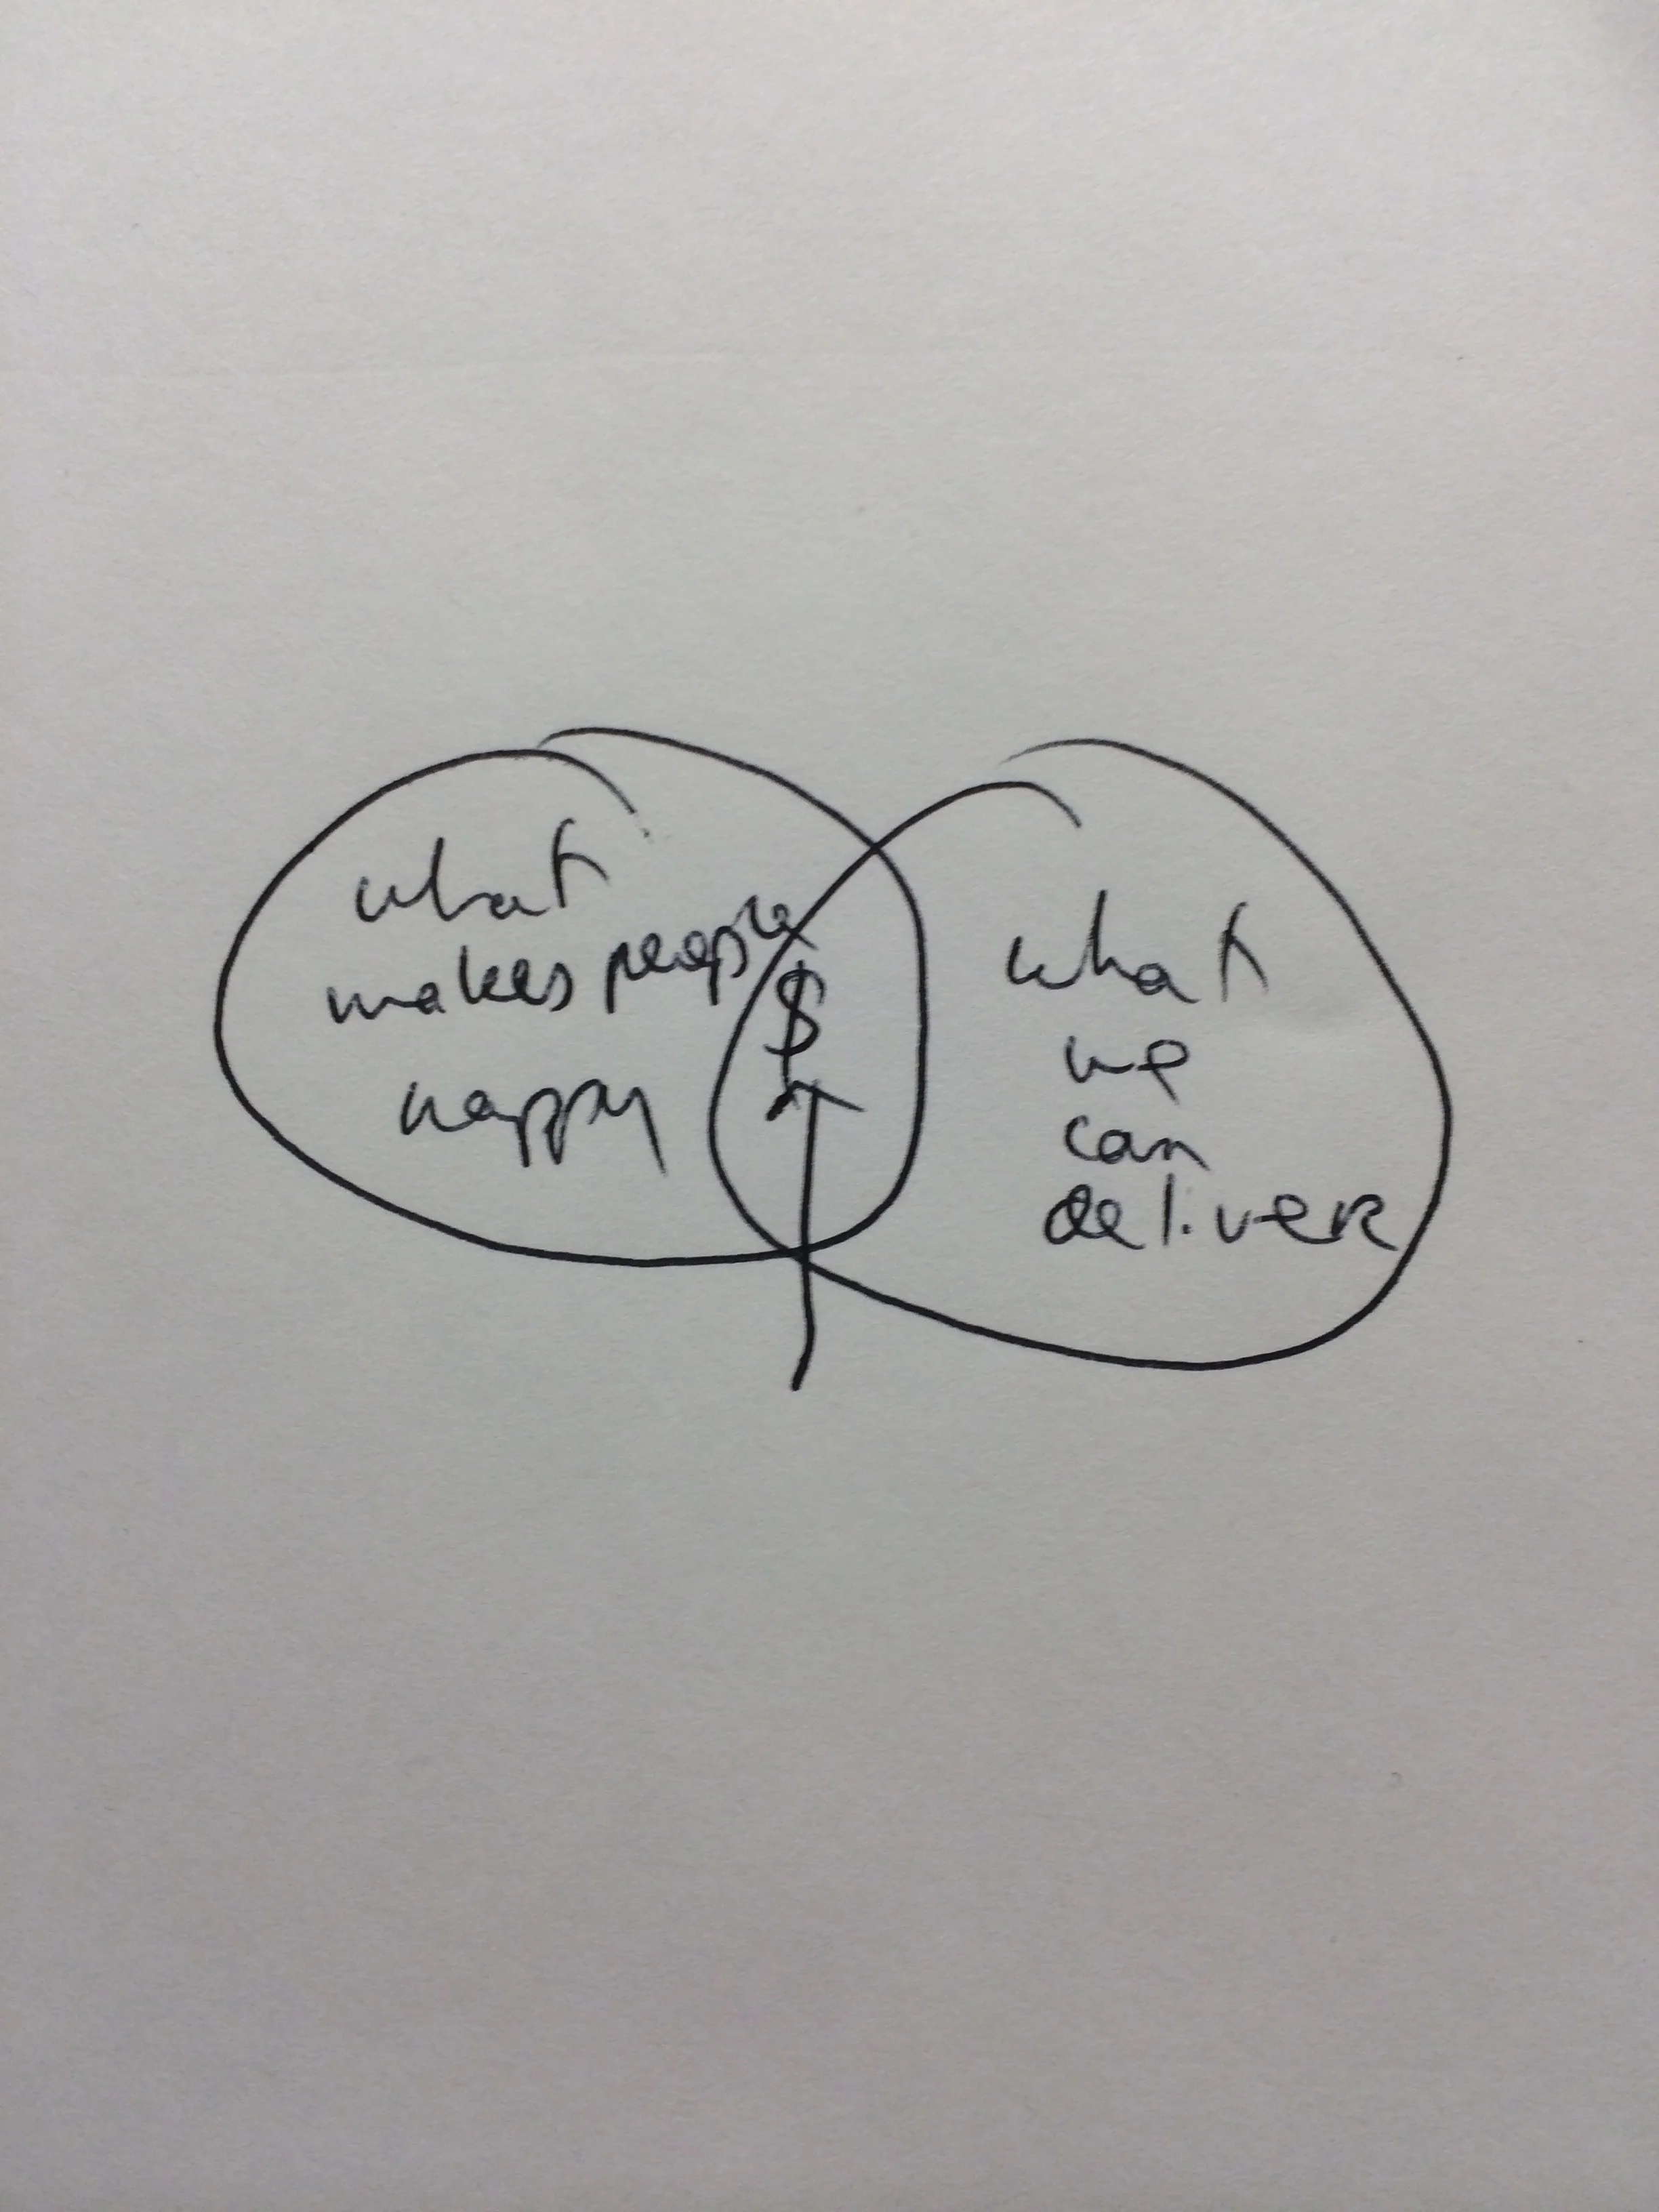 what
makes people
happy
$
what
we
can
deliver